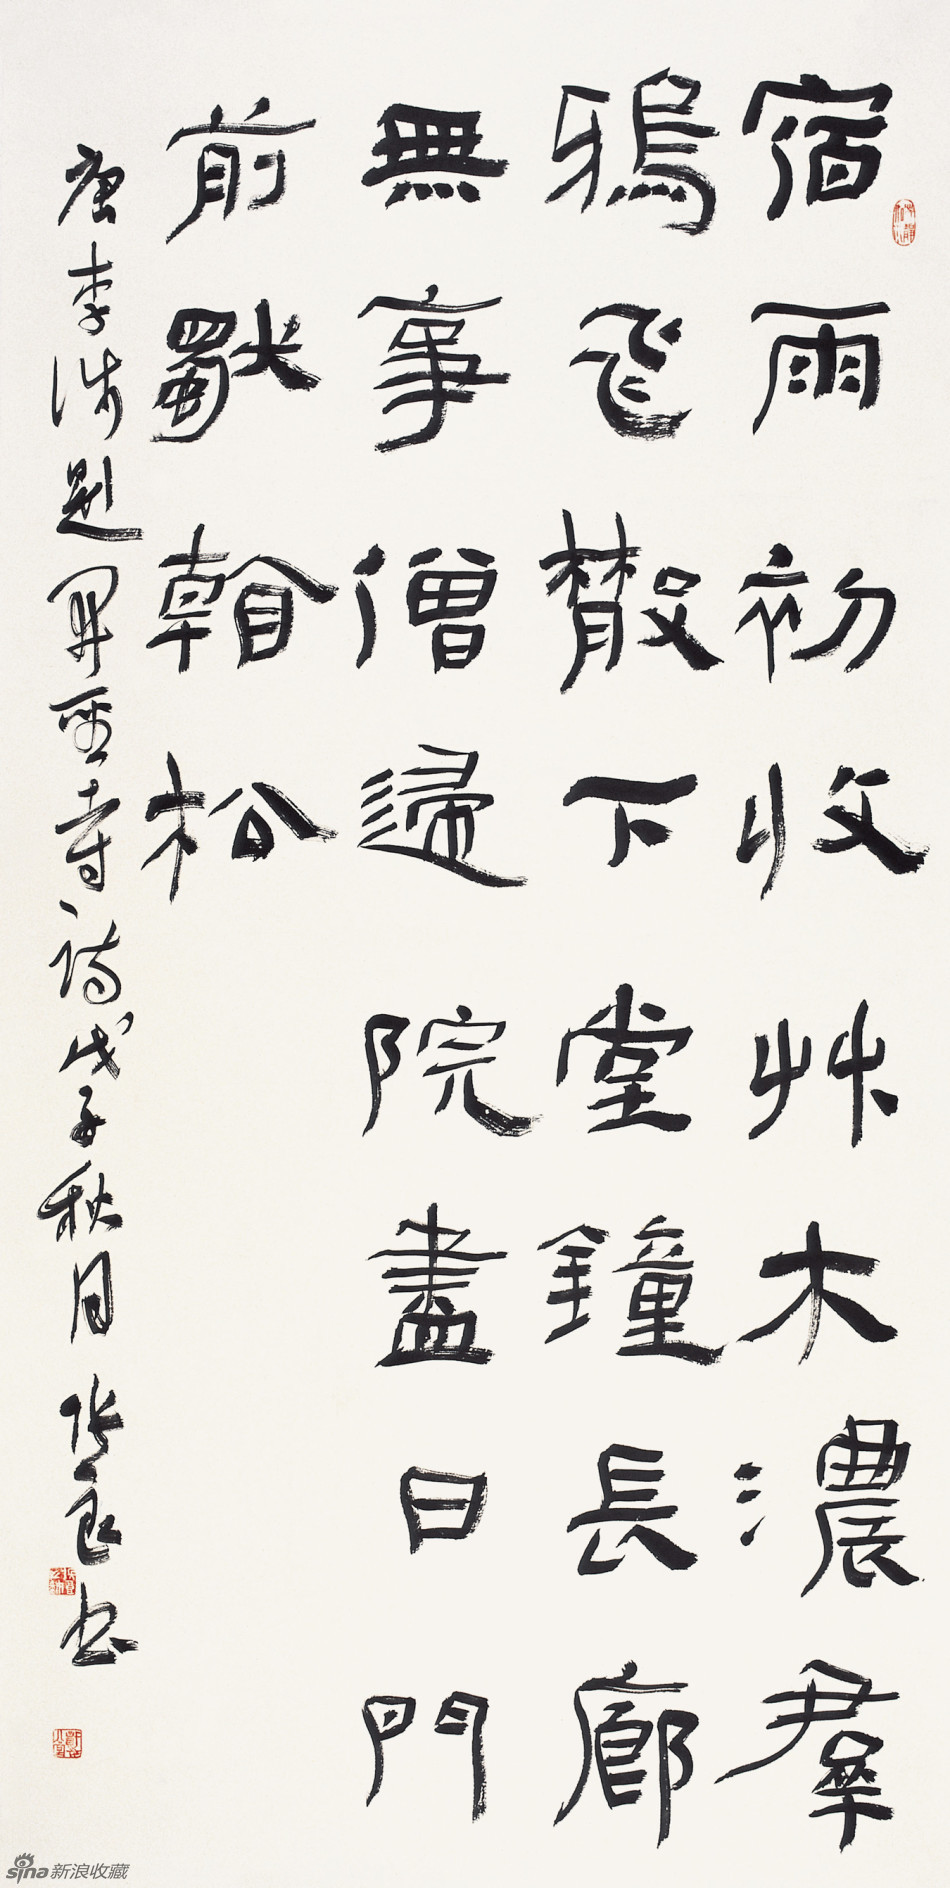 宿雨初收艸木濃羣
鴉飛散下堂鐘長廊
無事僧歸院盡日門
前獨看松
唐李涉題開聖寺詩戊子秋月张良书
sina新浪收藏